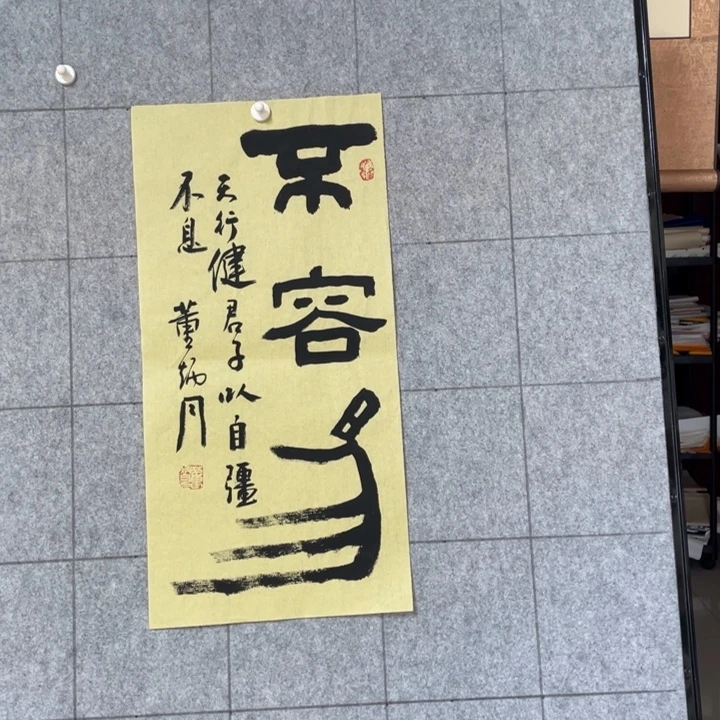 不容易
天行健君子以自彊
不息 董炳月